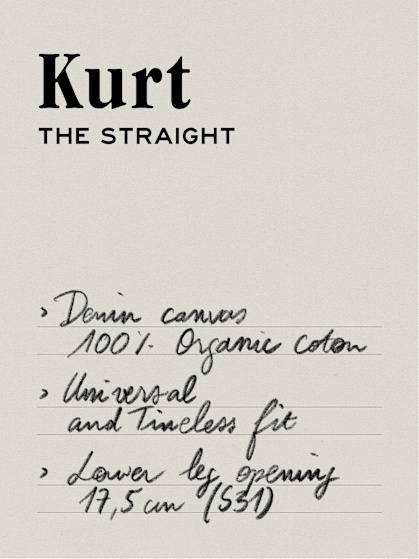 Kurt
THE STRAIGHT
› Denim canvas
100% Organic coton
› Universal
and Timeless fit
› Lower leg opening
17,5 cm (S31)